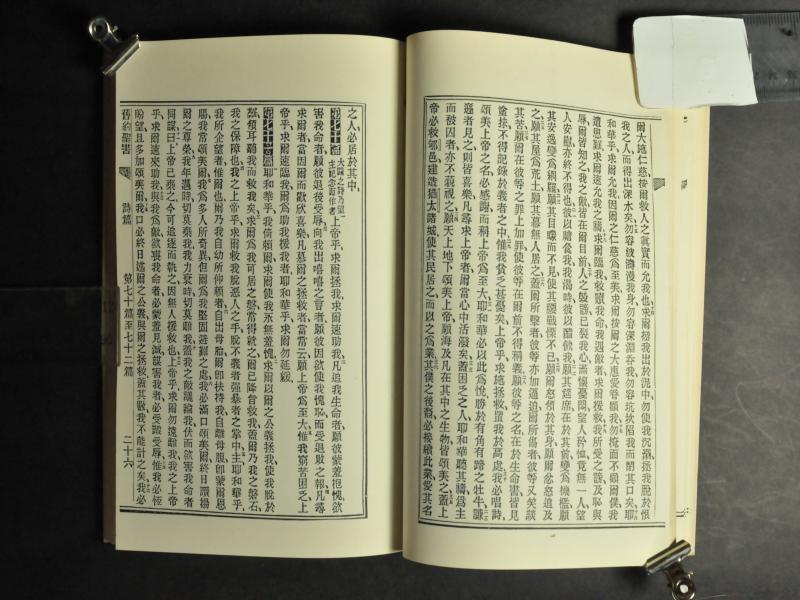 爾大施仁慈按爾救人之眞實而允我也求爾援我出於泥中勿使我沉溺拯我脫於恨
我之人而得出深水矣勿容波濤漫我身勿容深淵吞我勿容坑坎陷我而閉其口矣耶
和華乎求爾允我因爾之仁慈爲至美求爾按爾之大惠愛眷顧我勿掩面不顧爾僕我
遭患難求爾速允我之禱求爾臨我救贖我命我遇敵者求爾援救我所受之譏及恥與
辱爾皆知之我之敵皆在爾目前人之毀謗已裂我心甚懷憂悶望人矜恤竟無一人望
人安慰亦終不得也彼以膽食我我渴時彼以醋飲我願其筵席在於其前變爲機檻願
其安逸變爲網羅願其目矇而不見使其腰戰慄不已願爾怒傾於其身願爾忿怒追及
之願其屋爲荒土願其幕無人居之蓋爾所擊者彼等亦加逼迫爾所傷者彼等又笑談
其苦願爾在彼等之罪上加罪使彼等在爾前不得稱義願彼等之名在於生命書皆見
塗抹不得記錄於義者之中惟我貧乏甚憂矣上帝乎求爾施拯救置我於高處我必唱詩
頌美上帝之名必感謝而稱上帝爲至大耶和華必以此爲悅勝於有角有蹄之牡牛謙
遜者見之則皆喜樂凡尋求上帝者爾當心中活潑矣蓋困乏之人耶和華聽其禱爲主
而被囚者亦不藐視之願天上地下頌美上帝願海及凡在其中之生物皆頌美之蓋上
帝必救郇邑建造猶太諸城使其民居之而以之爲業其僕之後裔必接續此業愛其名
之人必居於其中
第七十篇 大闢之詩乃望主紀念而作書 上帝乎求爾拯我求爾速助我凡追我生命者願彼蒙羞抱愧欲
害我命者願彼退後受辱向我出嘻嘻之言者願彼因欲使我愧恥而受退敗之報凡尋
求爾者當因爾而歡欣喜樂凡慕爾之拯救者當常云願上帝爲至大惟我窮苦困乏上
帝乎求爾速臨我爾爲助我援我者耶和華乎求爾勿延緩
第七十一篇 耶和華乎我倚賴爾求爾使我永無羞愧求爾以爾之公義拯我使我脫於
難傾耳聽我而救我矣求爾爲我可居之磐當得就之爾已降旨救我蓋爾乃我之磐石
我之保障也我之上帝乎求爾救我脫惡人之手脫不義者強暴者之掌中主耶和華乎
我所企望者惟爾也爾乃我自幼所仰賴者自出母胎爾卽扶持我自離母腹卽蒙爾恩
賜我當頌美爾我爲多人所奇異但爾爲我堅固避難之處我必滿口頌美爾終日讚揚
爾之尊榮我年邁時切莫棄我我力衰時切莫離我蓋我之敵議論我伏而欲害我命者
同謀曰上帝已棄之今可追逐而執之因無人援救也上帝乎求爾勿遠離我我之上帝
乎求爾速來助我與我爲敵欲喪我命者必蒙羞見滅謀害我者必受譭受辱惟我必恆
盼望且多加頌美爾我口必終日述爾之公義與爾之拯救蓋其數我不能計之矣我必
舊約聖書
詩篇
第七十篇至七十二篇
二十六